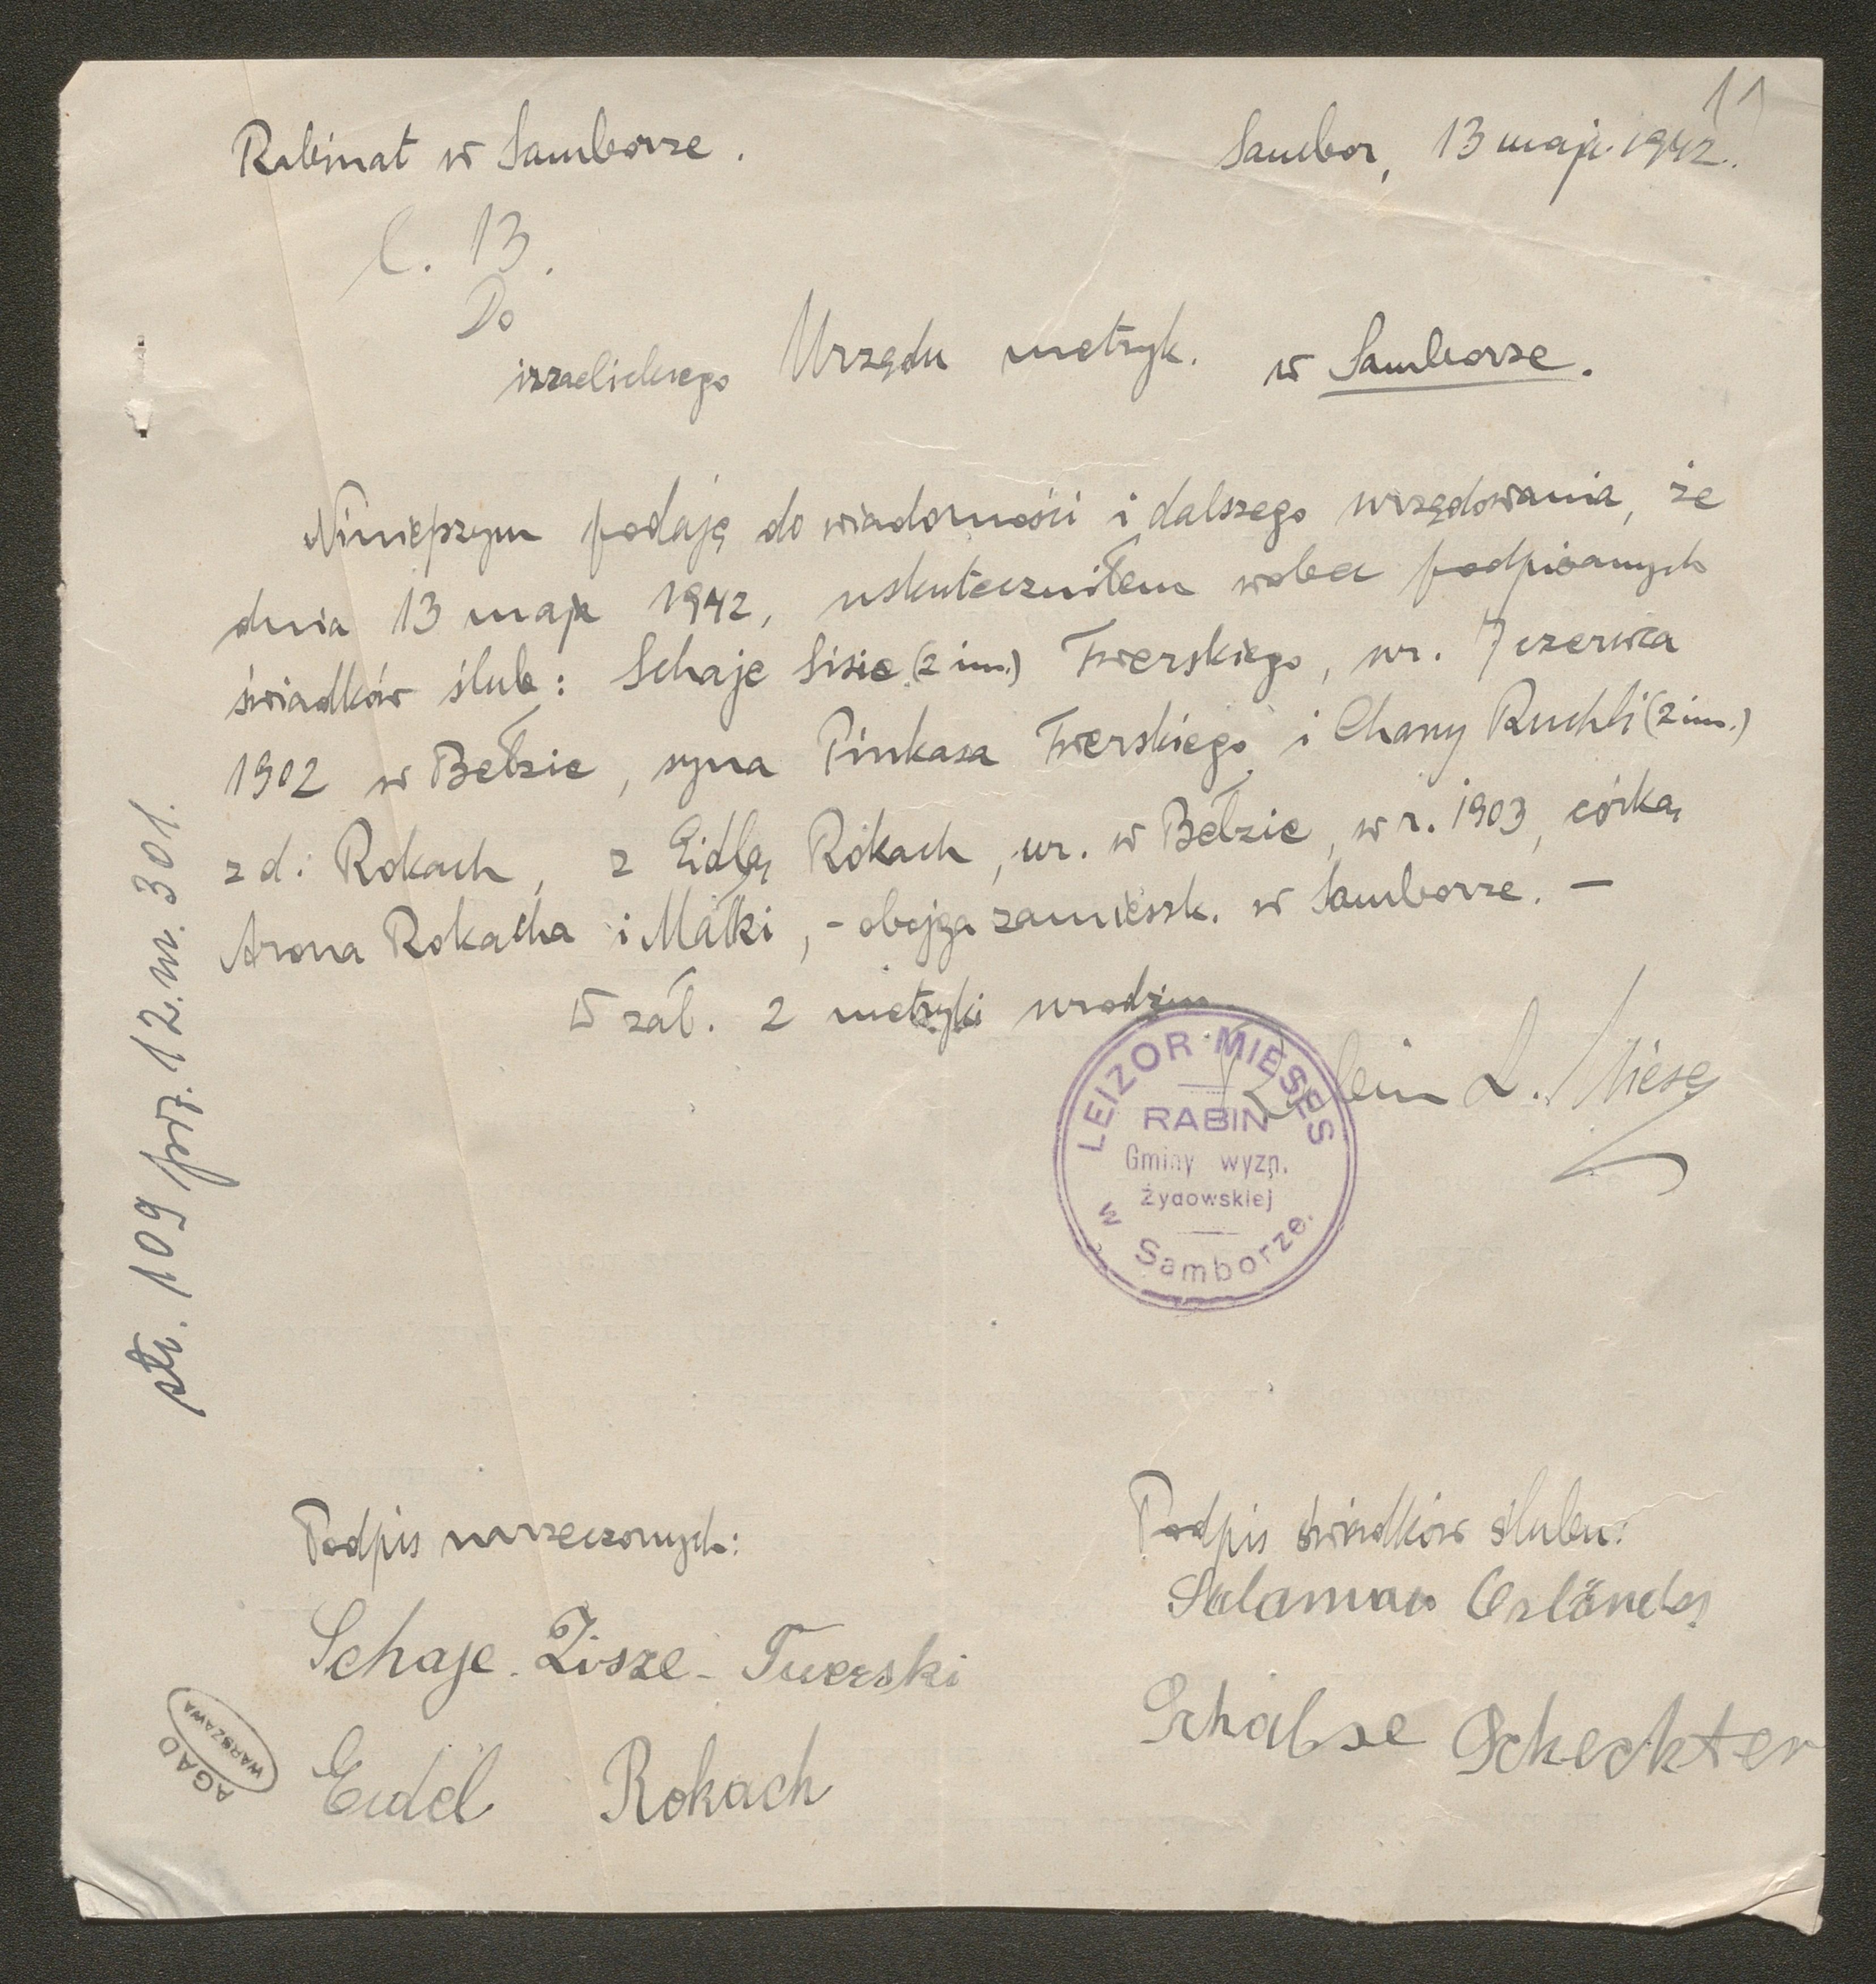 11
Rabinat w Samborze.
Sambor, 13 maja 1942.
L. 13.
Do
izraelickiego Urzędu metryk. w Samborze.
Niniejszym podaję do wiadomości i dalszego urzędowania, że
dnia 13 maja 1942, uskuteczniłem wobec podpisanych
świadków ślub: Schaje Sisie (2 im.) Twerskiego, ur. 7 czerwca
1902 w Bełzie, syna Pinkasa Twerskiego i Chany Ruchli (2 im.)
z d. Rokach, z Eidlą Rokach, ur. w Bełzie, w r. 1903, córką
Arona Rokacha i Małki, - obojga zamieszk. w Samborze. -
W zał. 2 metryki urodzin.
Rabin L. Mieses
LEIZOR MIESES
RABIN
Gminy wyzn.
Żydowskiej
w Samborze.
str. 109 poz. 12. nr. 301.
Podpis narzeczonych:
Schaje-Zisze-Twerski
Eidel Rokach
Podpis świadków ślubu:
Salamon
Schabse Scheckter
AGAD
WARSZAWA